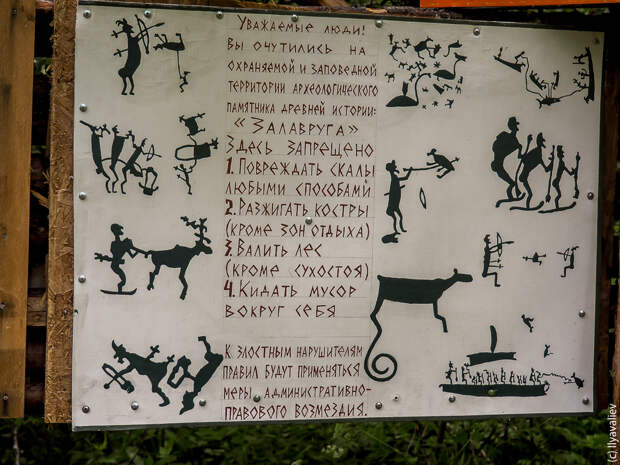 Уважаемые люди!
Вы очутились на
охраняемой и заповедной
территории археологического
памятника древней истории:
«Залавруга»
Здесь запрещено
1. Повреждать скалы
любыми способами
2. Разжигать костры
(кроме зон отдыха)
3. Валить лес
(кроме сухостоя)
4. Кидать мусор
вокруг себя
К злостным нарушителям
правил будут применяться
меры административно-
правового возмездия.
(c) Ilyavaliev